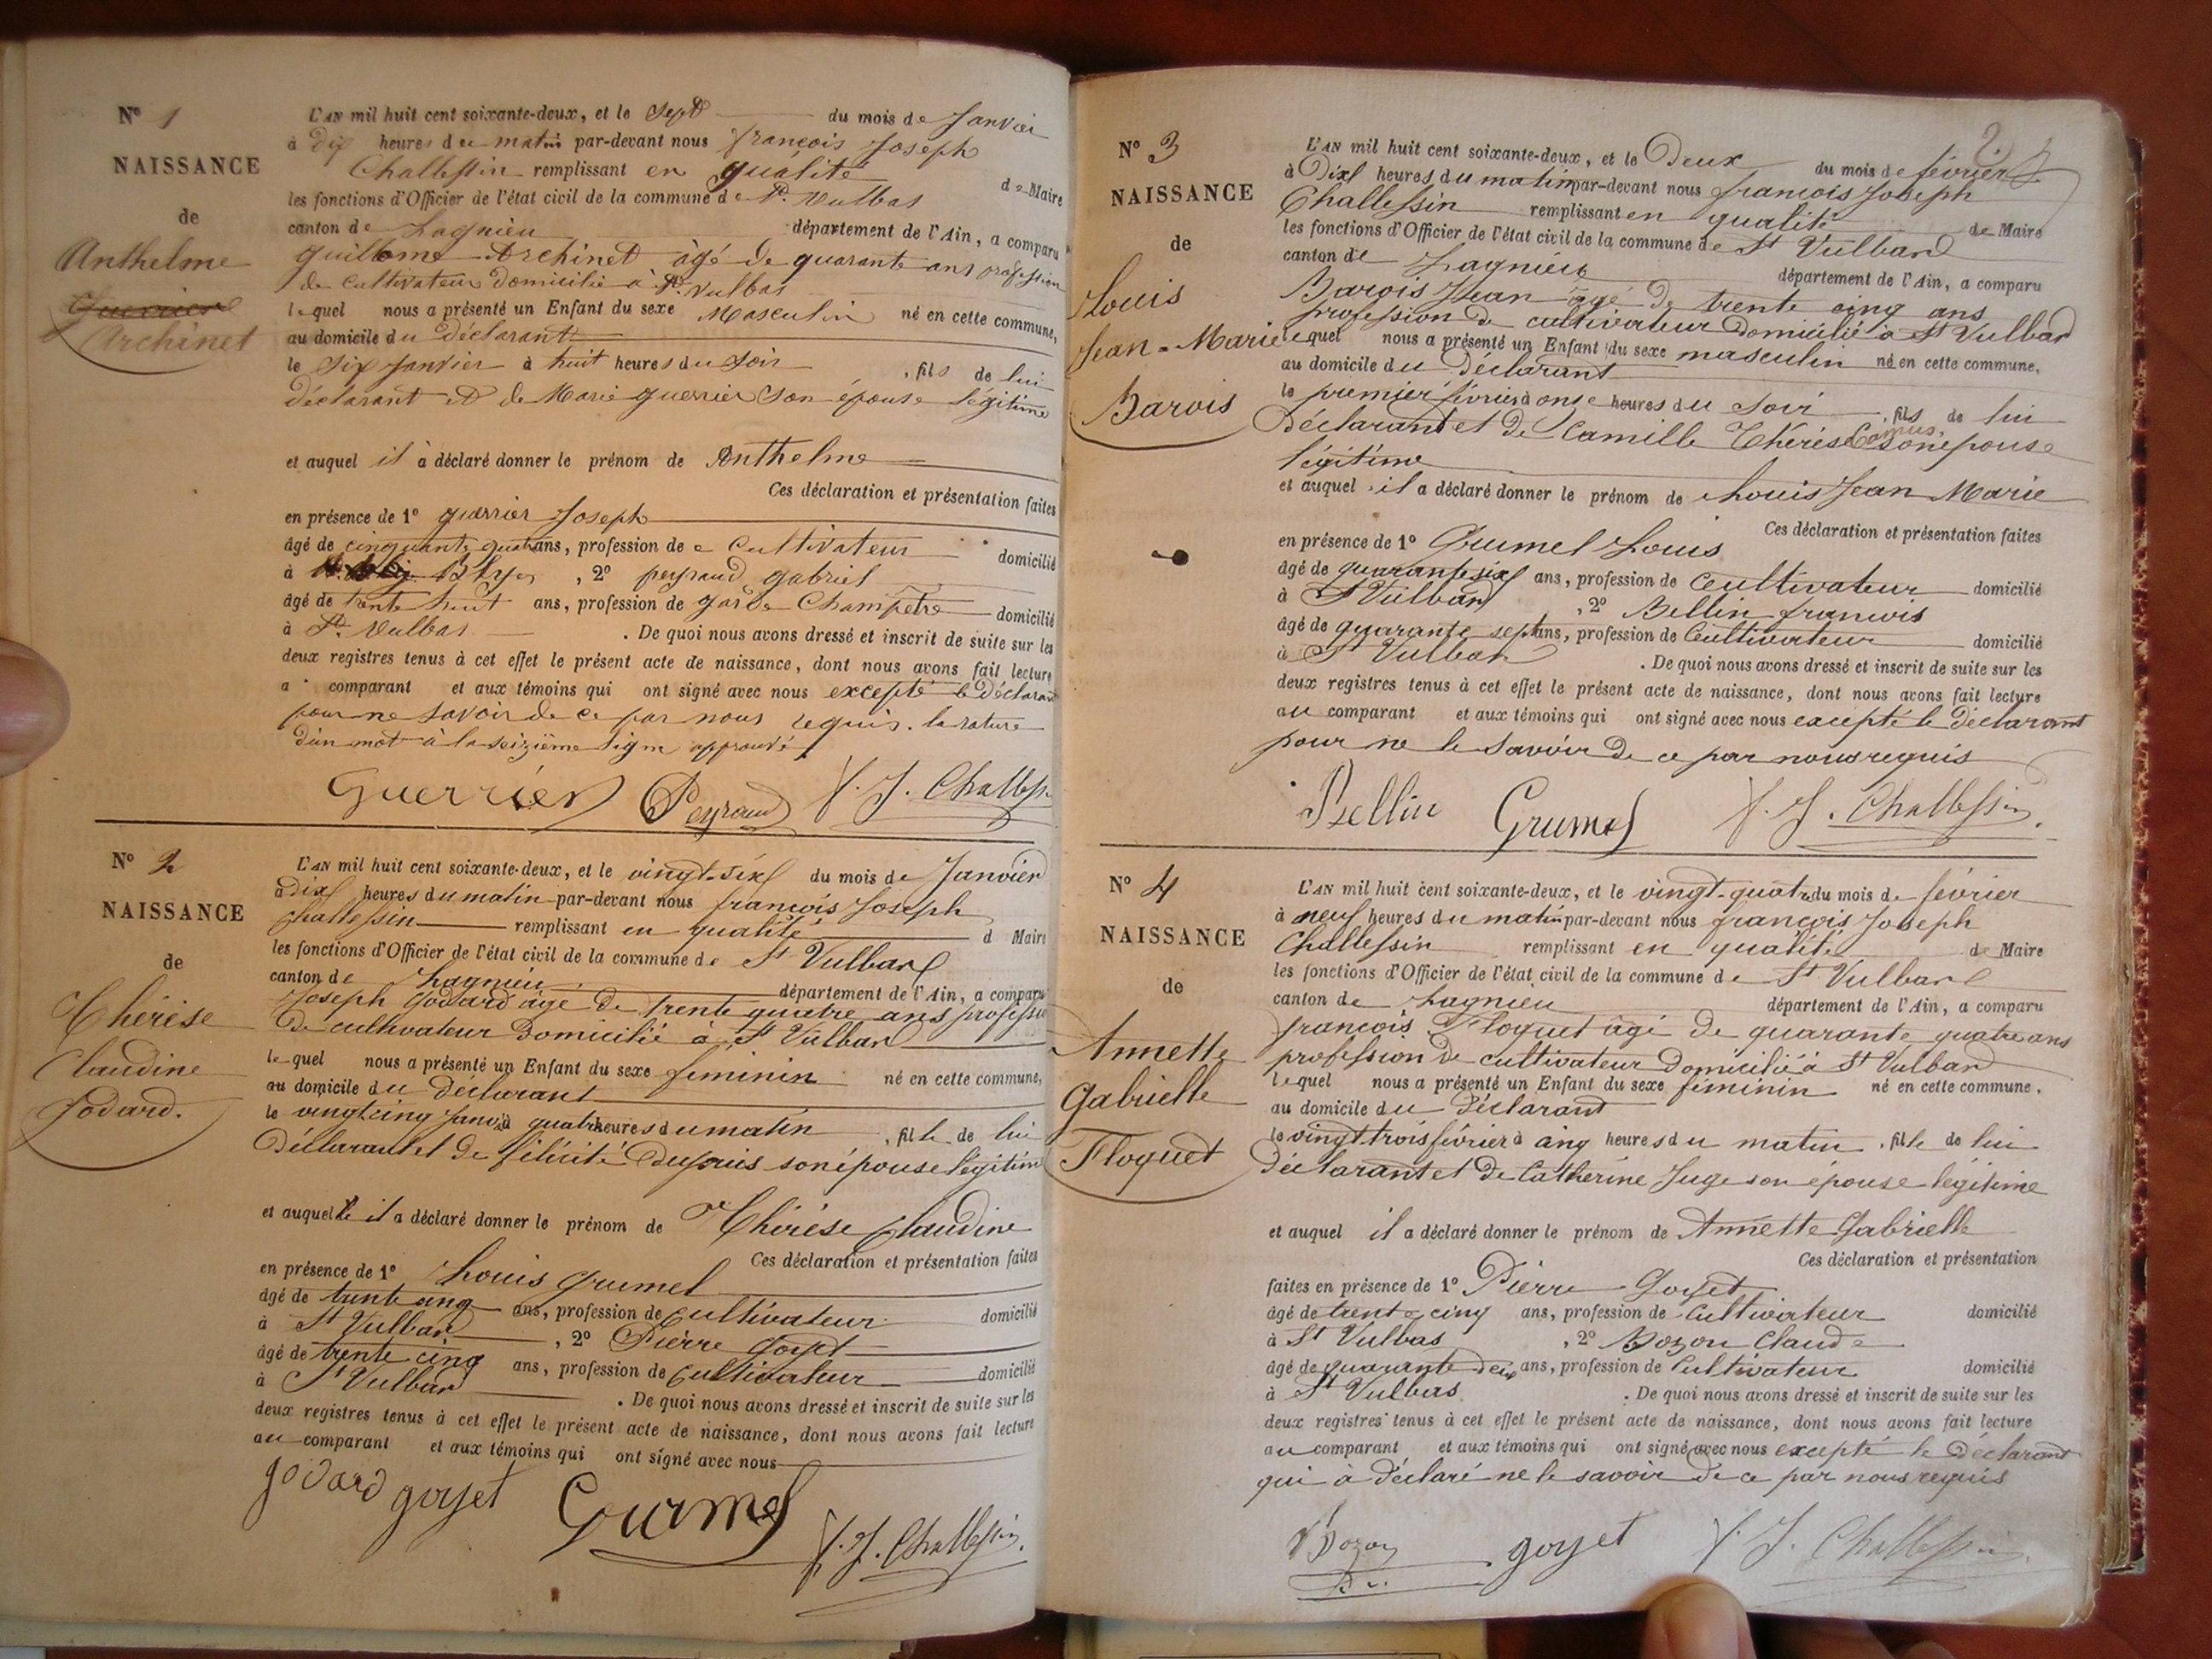 N° 1
NAISSANCE
de
Anthelme
Guerrier
Archinet
L'AN mil huit cent soixante-deux, et le Sept du mois de Janvier
à Dix heures du matin par-devant nous françois Joseph
Challessin remplissant en qualité de Maire
les fonctions d'Officier de l'état civil de la commune de St. Vulbas
canton de Lagnieu département de l'Ain, a comparu
Guillome Archinet âgé de quarante ans profession
de cultivateur domicilié à St. Vulbas
lequel nous a présenté un Enfant du sexe Masculin né en cette commune,
au domicile du Déclarant
le Six Janvier à huit heures du Soir , fils de lui
déclarant et de Marie guerrier Son épouse légitime
et auquel il à déclaré donner le prénom de Anthelme
Ces déclaration et présentation faites
en présence de 1° guerrier Joseph
âgé de cinquante quatre ans, profession de Cultivateur domicilié
à Blyes , 2° peyraud gabriel
âgé de trente huit ans, profession de garde Champetre domicilié
à St. Vulbas . De quoi nous avons dressé et inscrit de suite sur les
deux registres tenus à cet effet le présent acte de naissance, dont nous avons fait lecture
a comparant et aux témoins qui ont signé avec nous excepté le Déclarant
pour ne Savoir de ce par nous requis. la rature
d'un mot à la seizième ligne approuvé
Guerrier Peyraud f. J. Challessin
N° 2
NAISSANCE
de
Thérèse
Claudine
Godard.
L'AN mil huit cent soixante-deux, et le vingt-six du mois de Janvier
à dix heures du matin par-devant nous françois Joseph
Challessin remplissant en qualité d Maire
les fonctions d'Officier de l'état civil de la commune de St Vulbas
canton de Lagnieu département de l'Ain, a comparu
Joseph Godard âgé de trente quatre ans profession
de cultivateur domicilié à St Vulbas
lequel nous a présenté un Enfant du sexe féminin né en cette commune,
au domicile du déclarant
le vingt cinq Janvier à quatre heures du matin , fille de lui
Déclarant et de félicité Dupuis son épouse légitime
et auquelle il a déclaré donner le prénom de Thérèse Claudine
Ces déclaration et présentation faites
en présence de 1° Louis Grumel
âgé de trente cinq ans, profession de cultivateur domicilié
à St Vulbas , 2° Pierre Goyet
âgé de trente cinq ans, profession de cultivateur domicilié
à St Vulbas . De quoi nous avons dressé et inscrit de suite sur les
deux registres tenus à cet effet le présent acte de naissance, dont nous avons fait lecture
au comparant et aux témoins qui ont signé avec nous
godard goyet Gourmel f. J. Challessin.
N° 3
NAISSANCE
de
Louis
Jean-Marie
Barois
L'AN mil huit cent soixante-deux, et le Deux du mois de février
à Dix heures du matin par-devant nous francois Joseph
Challessin remplissant en qualité de Maire
les fonctions d'Officier de l'état civil de la commune de St Vulbas
canton de Lagnieu département de l'Ain, a comparu
Barois Jean âgé de trente cinq ans
profession de cultivateur domicilié à St Vulbas
lequel nous a présenté un Enfant du sexe masculin né en cette commune.
au domicile du Déclarant
le premier février à onse heures du Soir , fils de lui
Déclarant et de Camille Thérèse Camus son épouse
légitime
et auquel il a déclaré donner le prénom de Louis Jean Marie
Ces déclaration et présentation faites
en présence de 1° Grumel Louis
âgé de quarante six ans, profession de Cultivateur domicilié
à St Vulbas , 2° Bellin francois
âgé de quarante sept ans, profession de Cultivateur domicilié
à St Vulbas . De quoi nous avons dressé et inscrit de suite sur les
deux registres tenus à cet effet le présent acte de naissance, dont nous avons fait lecture
au comparant et aux témoins qui ont signé avec nous excepté le déclarant
pour ne le savoir de ce par nous requis
Bellin Grumel f. J. Challessin.
N° 4
NAISSANCE
de
Annette
Gabrielle
Floquet
L'AN mil huit cent soixante-deux, et le vingt-quatre du mois de février
à neuf heures du matin par-devant nous françois Joseph
Challessin remplissant en qualité de Maire
les fonctions d'Officier de l'état civil de la commune de St Vulbas
canton de Lagnieu département de l'Ain, a comparu
francois Floquet âgé de quarante quatre ans
profession de cultivateur domicilié à St Vulbas
lequel nous a présenté un Enfant du sexe féminin né en cette commune.
au domicile du Déclarant
le vingt trois février à cinq heures du matin , fille de lui
déclarant et de Catherine Juge son épouse légitime
et auquel il a déclaré donner le prénom de Annette Gabrielle
Ces déclaration et présentation
faites en présence de 1° Pierre Goyet
âgé de trente cinq ans, profession de Cultivateur domicilié
à St Vulbas , 2° Bozon Claude
âgé de quarante deux ans, profession de Cultivateur domicilié
à St Vulbas . De quoi nous avons dressé et inscrit de suite sur les
deux registres tenus à cet effet le présent acte de naissance, dont nous avons fait lecture
au comparant et aux témoins qui ont signé avec nous excepté le déclarant
qui à déclaré ne le savoir de ce par nous requis
Bozon goyet f. J. Challessin